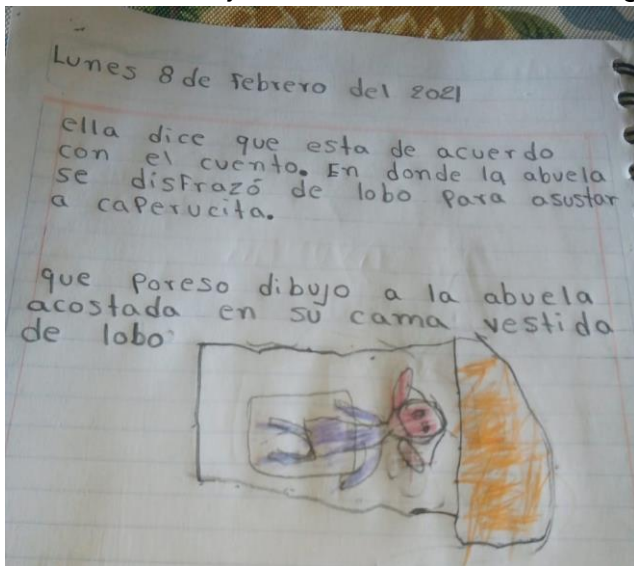 Lunes 8 de febrero del 2021
ella dice que esta de acuerdo
con el cuento. En donde la abuela
se disfrazó de lobo para asustar
a caperucita.
que poreso dibujo a la abuela
acostada en su cama vestida
de lobo